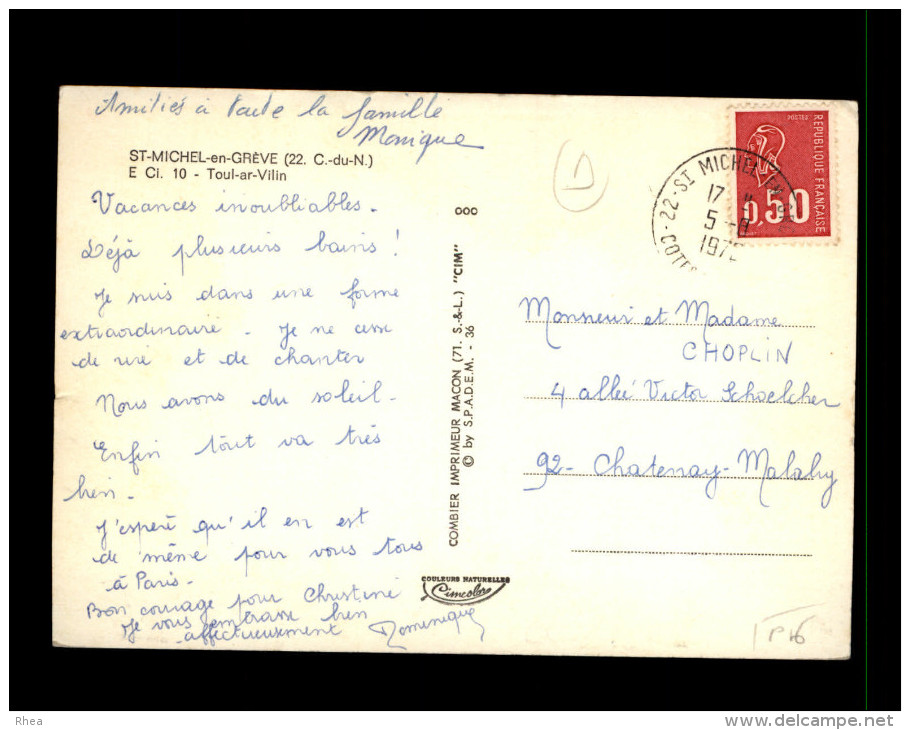 Amitiés à toute la famille
Monique
ST-MICHEL-en-GRÈVE (22. C.-du-N.)
E Ci. 10 - Toul-ar-Vilin
Vacances inoubliables.
Déjà plusieurs bains !
Je suis dans une forme
extraordinaire. Je ne cesse
de rire et de chanter
Nous avons du soleil.
Enfin tout va très
bien.
J'espère qu'il en est
de même pour vous tous
à Paris.
Bon courage pour Christine
Je vous embrasse bien
affectueusement Dominique
COMBIER IMPRIMEUR MACON (71. S.-&-L.) "CIM"
© by S.P.A.D.E.M. - 36
COULEURS NATURELLES
Cimcolor
D
22 - ST MICHEL EN
COTES
17 H
5 - 8
197
POSTES
REPUBLIQUE FRANÇAISE
0,50
Monsieur et Madame
CHOPLIN
4 allée Victor Schoelcher
92 - Chatenay-Malabry
Rhea
www.delcampe.net